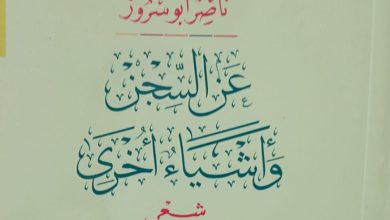 ناصر أبو سرور
عَنِ السِّجْنِ
وَأَشْيَاءَ أُخْرَى
شعر